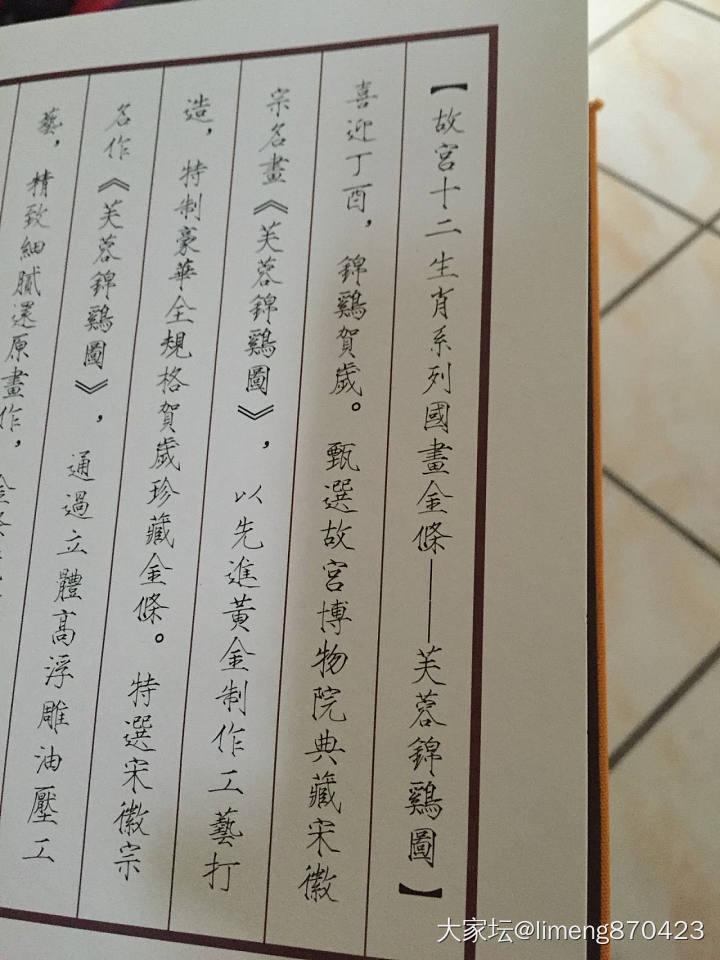 【故宮十二生肖系列國畫金條——芙蓉錦鷄圖】
喜迎丁酉，錦鷄賀歲。甄選故宮博物院典藏宋徽
宗名畫《芙蓉錦鷄圖》，以先進黃金制作工藝打
造，特制豪華全規格賀歲珍藏金條。特選宋徽宗
名作《芙蓉錦鷄圖》，通過立體高浮雕油壓工
藝，精致細膩還原畫作，金條
大家坛@limeng870423